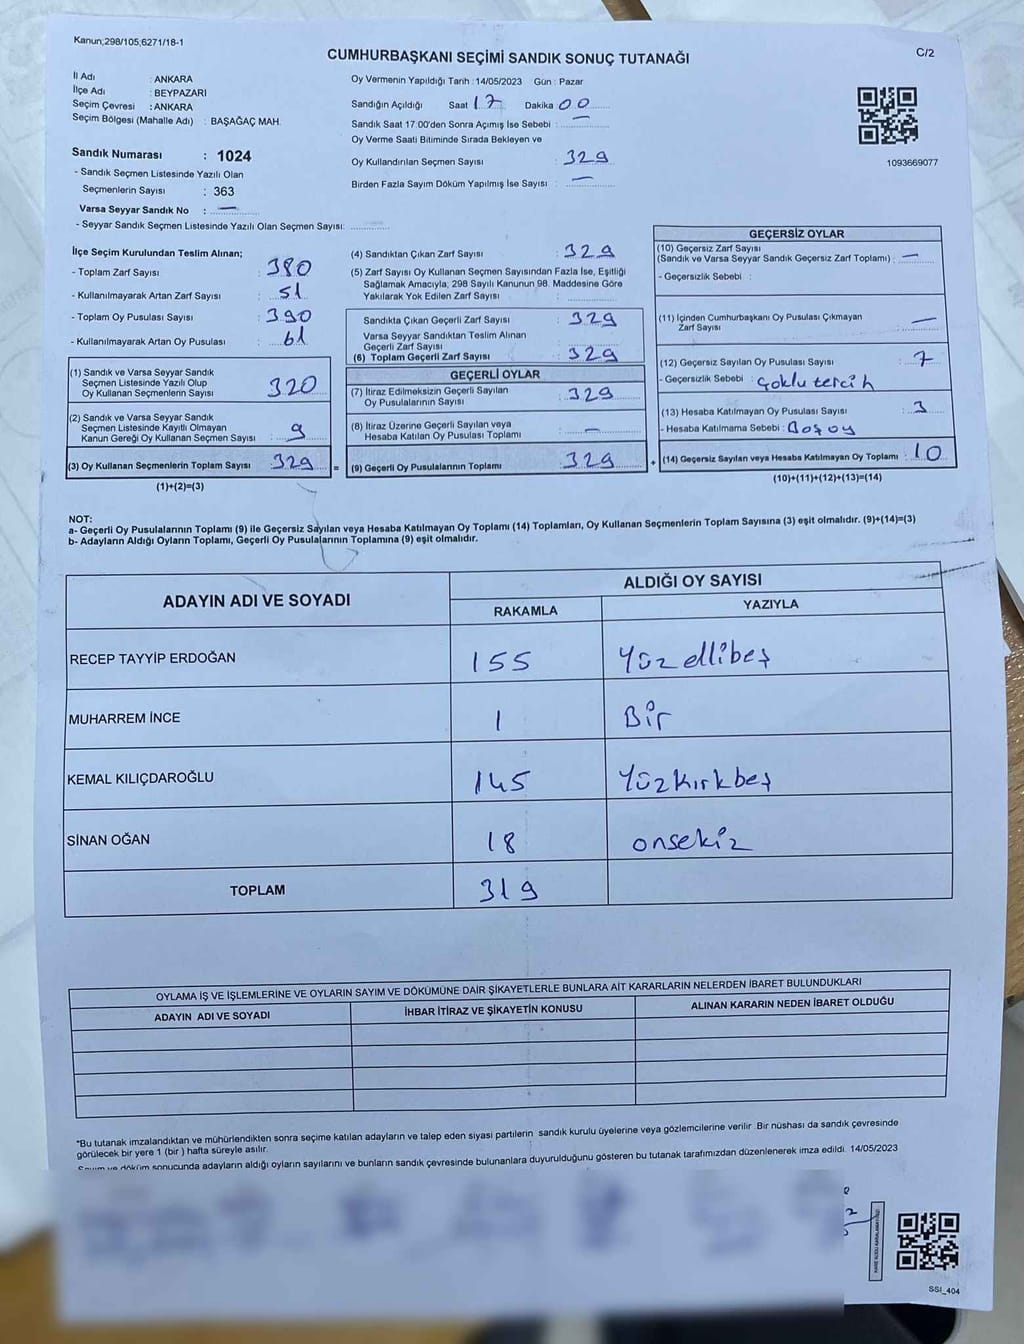 Kanun;298/105;6271/18-1
CUMHURBAŞKANI SEÇİMİ SANDIK SONUÇ TUTANAĞI
C/2
İl Adı : ANKARA
İlçe Adı : BEYPAZARI
Seçim Çevresi : ANKARA
Seçim Bölgesi (Mahalle Adı) : BAŞAĞAÇ MAH.
Sandık Numarası : 1024
- Sandık Seçmen Listesinde Yazılı Olan
Seçmenlerin Sayısı : 363
Varsa Seyyar Sandık No : —
- Seyyar Sandık Seçmen Listesinde Yazılı Olan Seçmen Sayısı:
Oy Vermenin Yapıldığı Tarih : 14/05/2023 Gün : Pazar
Sandığın Açıldığı Saat 17 Dakika 00
Sandık Saat 17:00'den Sonra Açımış İse Sebebi : —
Oy Verme Saati Bitiminde Sırada Bekleyen ve
Oy Kullandırılan Seçmen Sayısı : 329
Birden Fazla Sayım Döküm Yapılmış İse Sayısı : —
1093669077
İlçe Seçim Kurulundan Teslim Alınan;
- Toplam Zarf Sayısı : 380
- Kullanılmayarak Artan Zarf Sayısı : 51
- Toplam Oy Pusulası Sayısı : 390
- Kullanılmayarak Artan Oy Pusulası : 61
(1) Sandık ve Varsa Seyyar Sandık
Seçmen Listesinde Yazılı Olup
Oy Kullanan Seçmenlerin Sayısı : 320
(2) Sandık ve Varsa Seyyar Sandık
Seçmen Listesinde Kayıtlı Olmayan
Kanun Gereği Oy Kullanan Seçmen Sayısı : 9
(3) Oy Kullanan Seçmenlerin Toplam Sayısı : 329 =
(1)+(2)=(3)
(4) Sandıktan Çıkan Zarf Sayısı : 329
(5) Zarf Sayısı Oy Kullanan Seçmen Sayısından Fazla İse, Eşitliği
Sağlamak Amacıyla, 298 Sayılı Kanunun 98. Maddesine Göre
Yakılarak Yok Edilen Zarf Sayısı :
Sandıkta Çıkan Geçerli Zarf Sayısı : 329
Varsa Seyyar Sandıktan Teslim Alınan
Geçerli Zarf Sayısı :
(6) Toplam Geçerli Zarf Sayısı : 329
GEÇERLİ OYLAR
(7) İtiraz Edilmeksizin Geçerli Sayılan
Oy Pusulalarının Sayısı : 329
(8) İtiraz Üzerine Geçerli Sayılan veya
Hesaba Katılan Oy Pusulası Toplamı : —
(9) Geçerli Oy Pusulalarının Toplamı : 329 +
GEÇERSİZ OYLAR
(10) Geçersiz Zarf Sayısı
(Sandık ve Varsa Seyyar Sandık Geçersiz Zarf Toplamı) : —
- Geçersizlik Sebebi :
(11) İçinden Cumhurbaşkanı Oy Pusulası Çıkmayan
Zarf Sayısı : —
(12) Geçersiz Sayılan Oy Pusulası Sayısı : 7
- Geçersizlik Sebebi : Çoklu tercih
(13) Hesaba Katılmayan Oy Pusulası Sayısı : 3
- Hesaba Katılmama Sebebi : Boş oy
(14) Geçersiz Sayılan veya Hesaba Katılmayan Oy Toplamı : 10
(10)+(11)+(12)+(13)=(14)
NOT:
a- Geçerli Oy Pusulalarının Toplamı (9) ile Geçersiz Sayılan veya Hesaba Katılmayan Oy Toplamı (14) Toplamları, Oy Kullanan Seçmenlerin Toplam Sayısına (3) eşit olmalıdır. (9)+(14)=(3)
b- Adayların Aldığı Oyların Toplamı, Geçerli Oy Pusulalarının Toplamına (9) eşit olmalıdır.
ADAYIN ADI VE SOYADI
ALDIĞI OY SAYISI
RAKAMLA YAZIYLA
RECEP TAYYİP ERDOĞAN 155 Yüz ellibeş
MUHARREM İNCE 1 Bir
KEMAL KILIÇDAROĞLU 145 Yüzkırkbeş
SİNAN OĞAN 18 onsekiz
TOPLAM 319
OYLAMA İŞ VE İŞLEMLERİNE VE OYLARIN SAYIM VE DÖKÜMÜNE DAİR ŞİKAYETLERLE BUNLARA AİT KARARLARIN NELERDEN İBARET BULUNDUKLARI
ADAYIN ADI VE SOYADI İHBAR İTİRAZ VE ŞİKAYETİN KONUSU ALINAN KARARIN NEDEN İBARET OLDUĞU
*Bu tutanak imzalandıktan ve mühürlendikten sonra seçime katılan adayların ve talep eden siyasi partilerin sandık kurulu üyelerine veya gözlemcilerine verilir. Bir nüshası da sandık çevresinde
görülecek bir yere 1 (bir) hafta süreyle asılır.
Sayım ve döküm sonucunda adayların aldığı oyların sayılarını ve bunların sandık çevresinde bulunanlara duyurulduğunu gösteren bu tutanak tarafımızdan düzenlenerek imza edildi. 14/05/2023
SSI_404